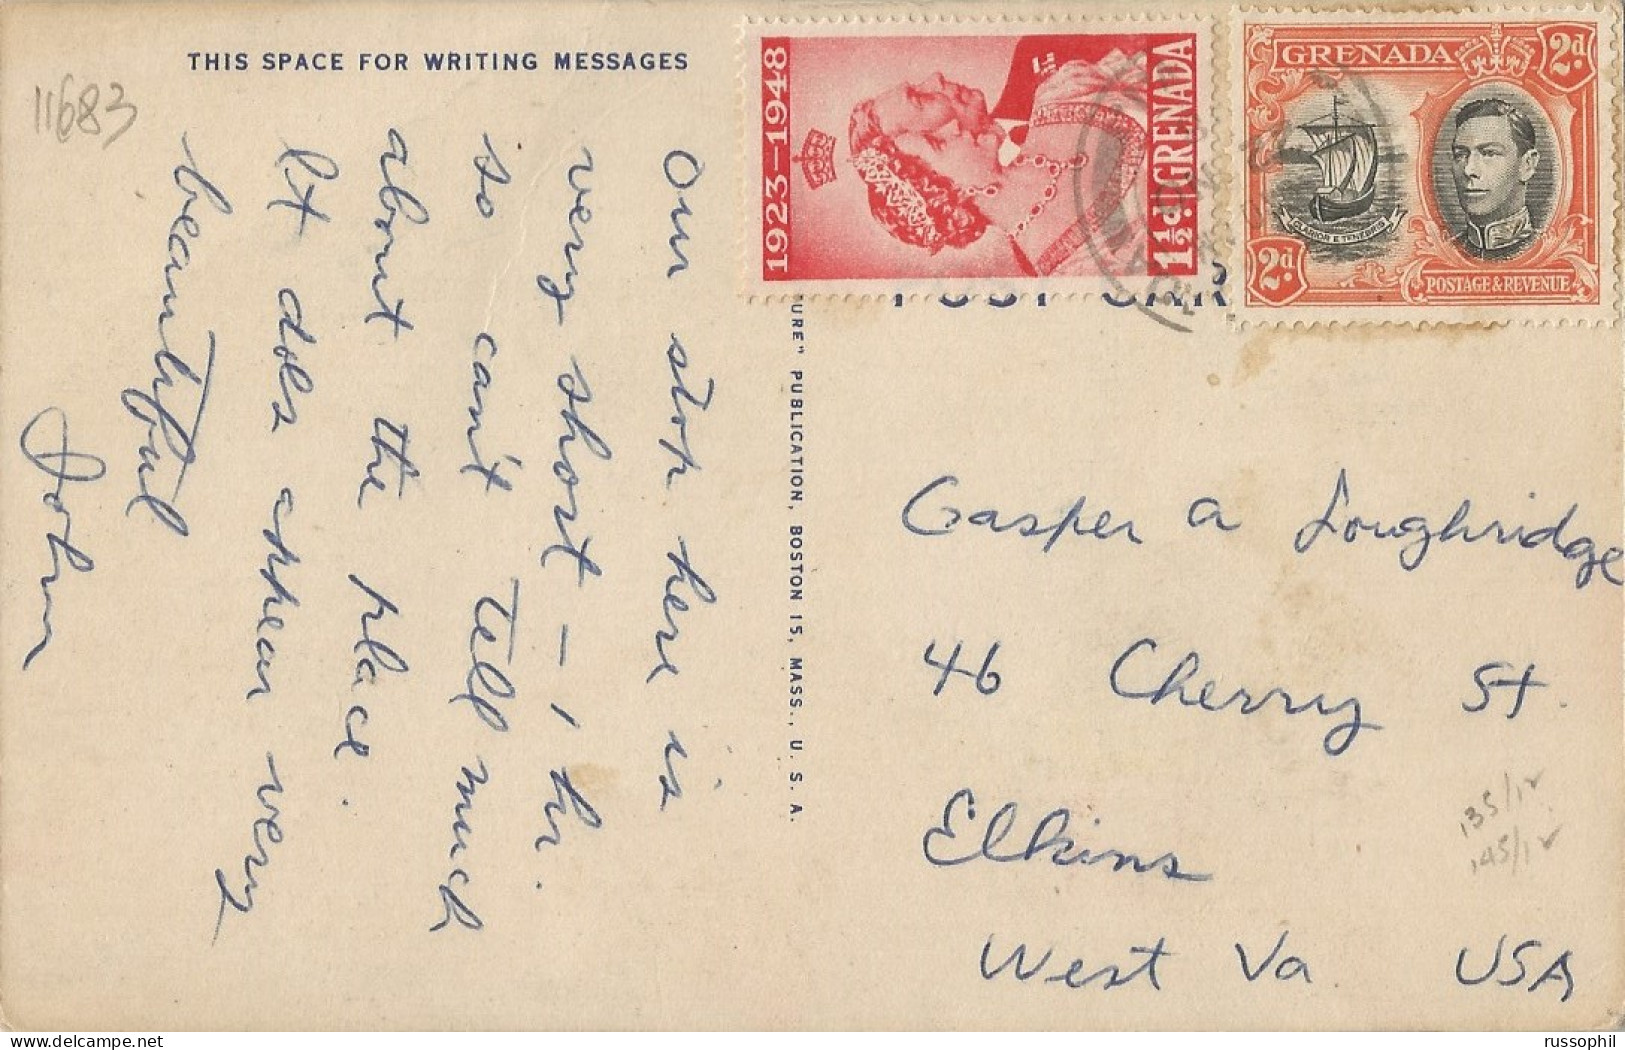 THIS SPACE FOR WRITING MESSAGES
11683
Our stop here is
very short – 1 hr.
so can't tell much
about the place.
It does appear very
beautiful
John
URE" PUBLICATION, BOSTON 15, MASS., U. S. A.
1923–1948
GRENADA
1½d.
GRENADA
2d
CLARIOR E TENEBRIS
2d
POSTAGE & REVENUE
Casper a Loughridge
46 Cherry St.
Elkins
West Va USA
.135/12
.145/12
russophil